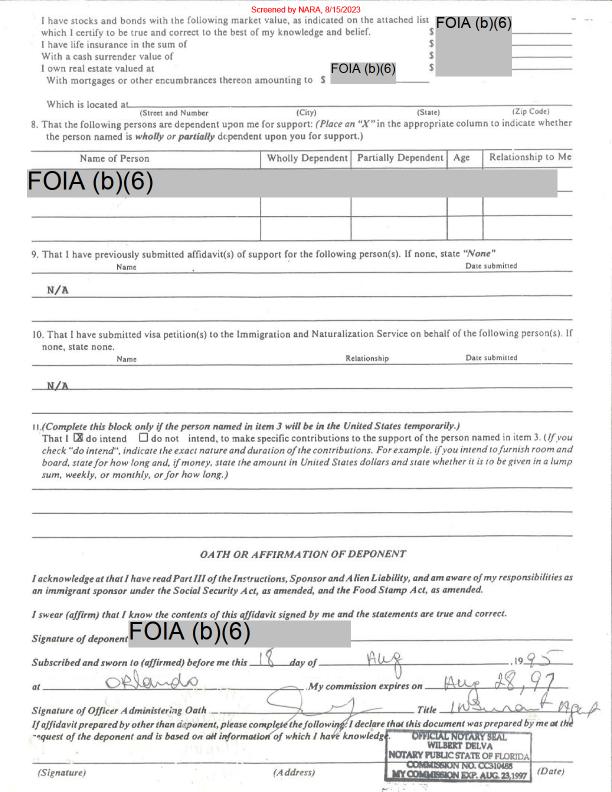 Screened by NARA, 8/15/2023
I have stocks and bonds with the following market value, as indicated on the attached list
which I certify to be true and correct to the best of my knowledge and belief. $ FOIA (b)(6)
I have life insurance in the sum of $
With a cash surrender value of
I own real estate valued at $
With mortgages or other encumbrances thereon amounting to $ FOIA (b)(6)
Which is located at
(Street and Number) (City) (State) (Zip Code)
8. That the following persons are dependent upon me for support: (Place an "X" in the appropriate column to indicate whether
the person named is wholly or partially dependent upon you for support.)
Name of Person Wholly Dependent Partially Dependent Age Relationship to Me
FOIA (b)(6)
9. That I have previously submitted affidavit(s) of support for the following person(s). If none, state "None"
Name Date submitted
N/A
10. That I have submitted visa petition(s) to the Immigration and Naturalization Service on behalf of the following person(s). If
none, state none.
Name Relationship Date submitted
N/A
11. (Complete this block only if the person named in item 3 will be in the United States temporarily.)
That I ☒ do intend ☐ do not intend, to make specific contributions to the support of the person named in item 3. (If you
check "do intend", indicate the exact nature and duration of the contributions. For example, if you intend to furnish room and
board, state for how long and, if money, state the amount in United States dollars and state whether it is to be given in a lump
sum, weekly, or monthly, or for how long.)
OATH OR AFFIRMATION OF DEPONENT
I acknowledge at that I have read Part III of the Instructions, Sponsor and Alien Liability, and am aware of my responsibilities as
an immigrant sponsor under the Social Security Act, as amended, and the Food Stamp Act, as amended.
I swear (affirm) that I know the contents of this affidavit signed by me and the statements are true and correct.
Signature of deponent FOIA (b)(6)
Subscribed and sworn to (affirmed) before me this 18 day of Aug , 19 95
at Orlando . My commission expires on Aug 28, 97
Signature of Officer Administering Oath Title Insurant Agent
If affidavit prepared by other than deponent, please complete the following: I declare that this document was prepared by me at the
request of the deponent and is based on all information of which I have knowledge.
OFFICIAL NOTARY SEAL
WILBERT DELVA
NOTARY PUBLIC STATE OF FLORIDA
COMMISSION NO. CC310485
MY COMMISSION EXP. AUG. 23,1997
(Signature) (Address) (Date)